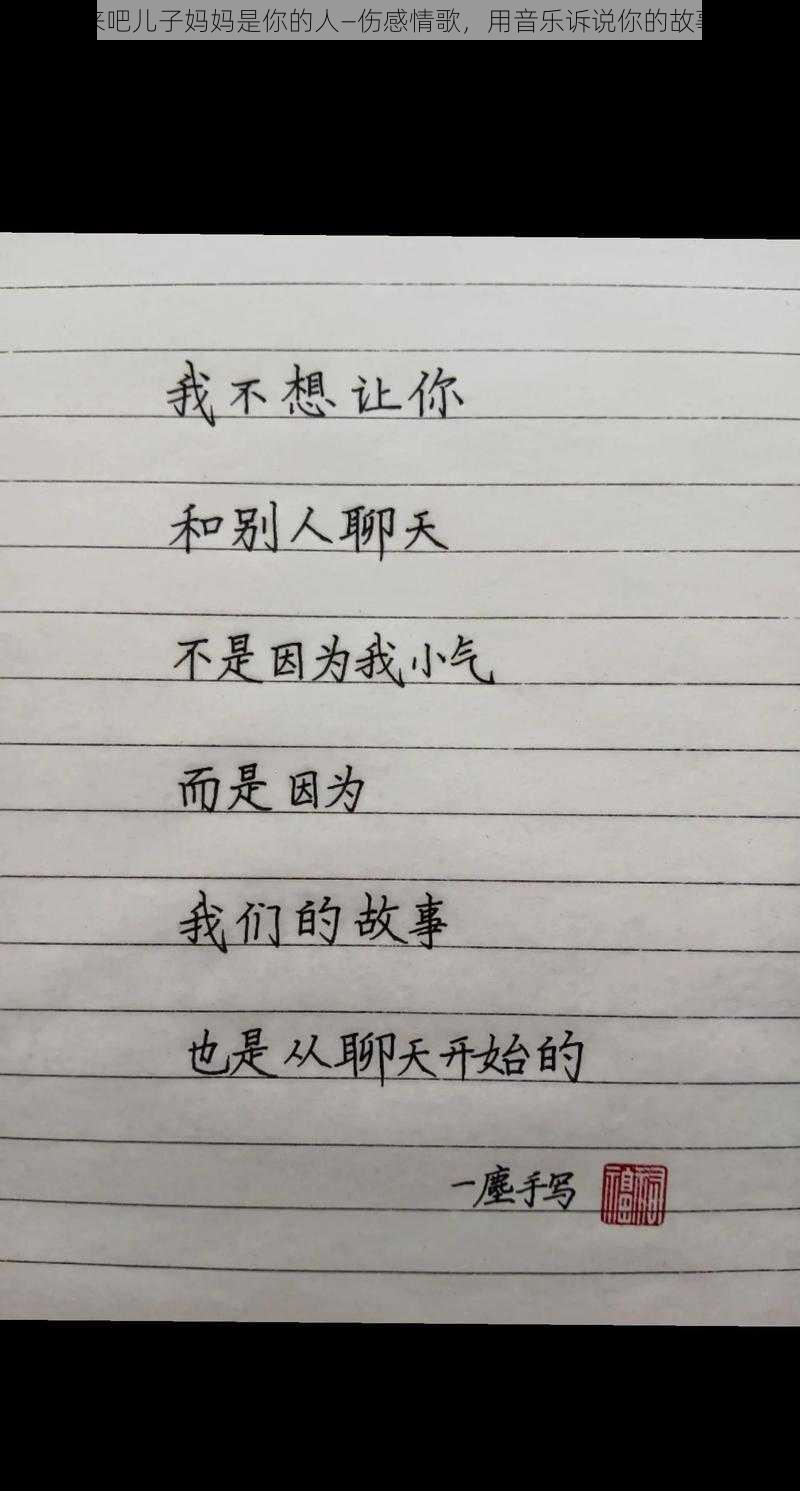 来吧儿子妈妈是你的人–伤感情歌，用音乐诉说你的故事
我不想让你
和别人聊天
不是因为我小气
而是因为
我们的故事
也是从聊天开始的
一塵手写